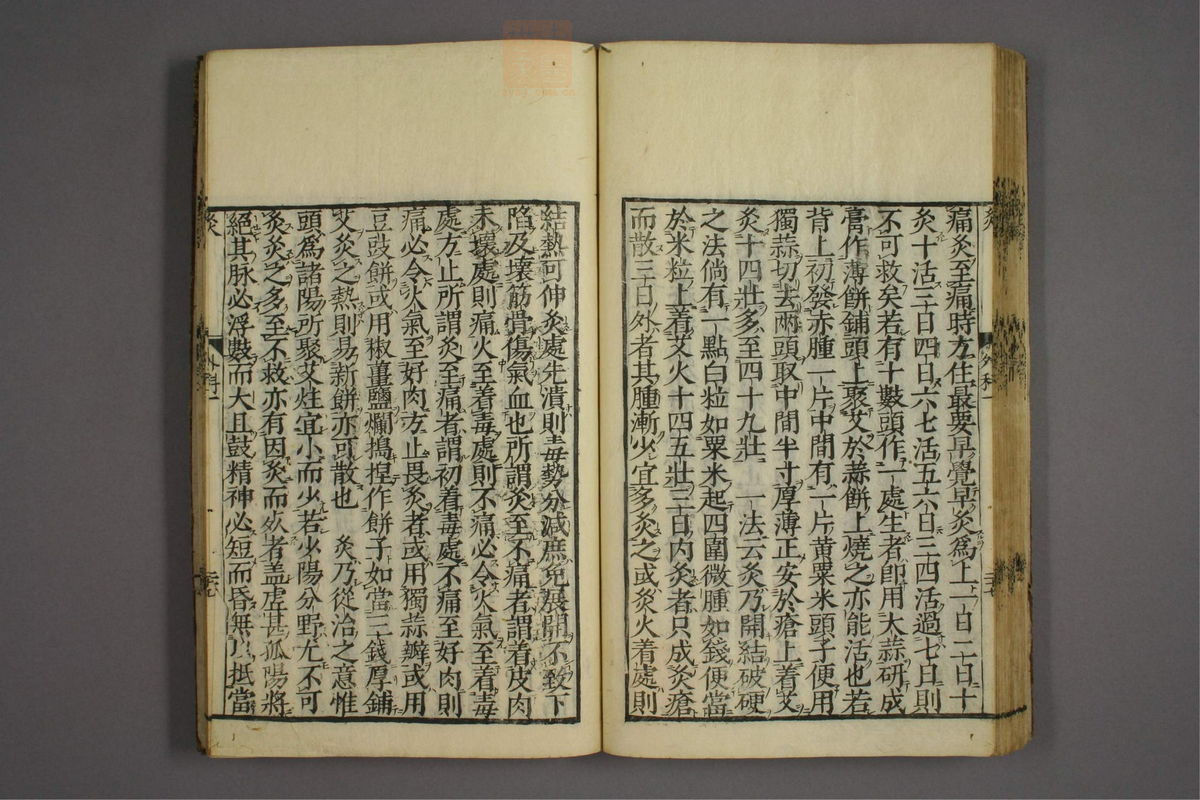 痛灸至痛時方住最要早覺早灸爲上一日二日十
灸十活三日四日六七活五六日三四活過七日則
不可救矣若有十數頭作一處生者即用大蒜研成
膏作薄餅鋪頭上聚艾於蒜餅上燒之亦能活也若
背上初發赤腫一片中間有一片黃粟米頭子便用
獨蒜切去兩頭取中間半寸厚薄正安於瘡上着艾
灸十四壯多至四十九壯 一法云灸乃開結破硬
之法倘有一點白粒如粟米起四圍微腫如錢便當
於米粒上着艾火十四五壯三日內灸者只成灸瘡
而散三日外者其腫漸少宜多灸之或灸火着處則
結熱可伸灸處先潰則毒勢分減庶免展開不致下
陷及壞筋骨傷氣血也所謂灸至不痛者謂着皮肉
未壞處則痛火至着毒處則不痛必令火氣至着毒
處方止所謂灸至痛者謂初着毒處不痛至好肉則
痛必令火氣至好肉方止畏灸者或用獨蒜瓣或用
豆豉餅或用椒薑鹽爛搗揑作餅子如當三錢厚鋪
艾灸之熱則易新餅亦可散也 灸乃從治之意惟
頭爲諸陽所聚艾炷宜小而少若少陽分野尤不可
灸灸之多至不救亦有因灸而死者盖虛甚孤陽將
絕其脉必浮數而大且鼓精神必短而昏無以抵當
灸
外科一